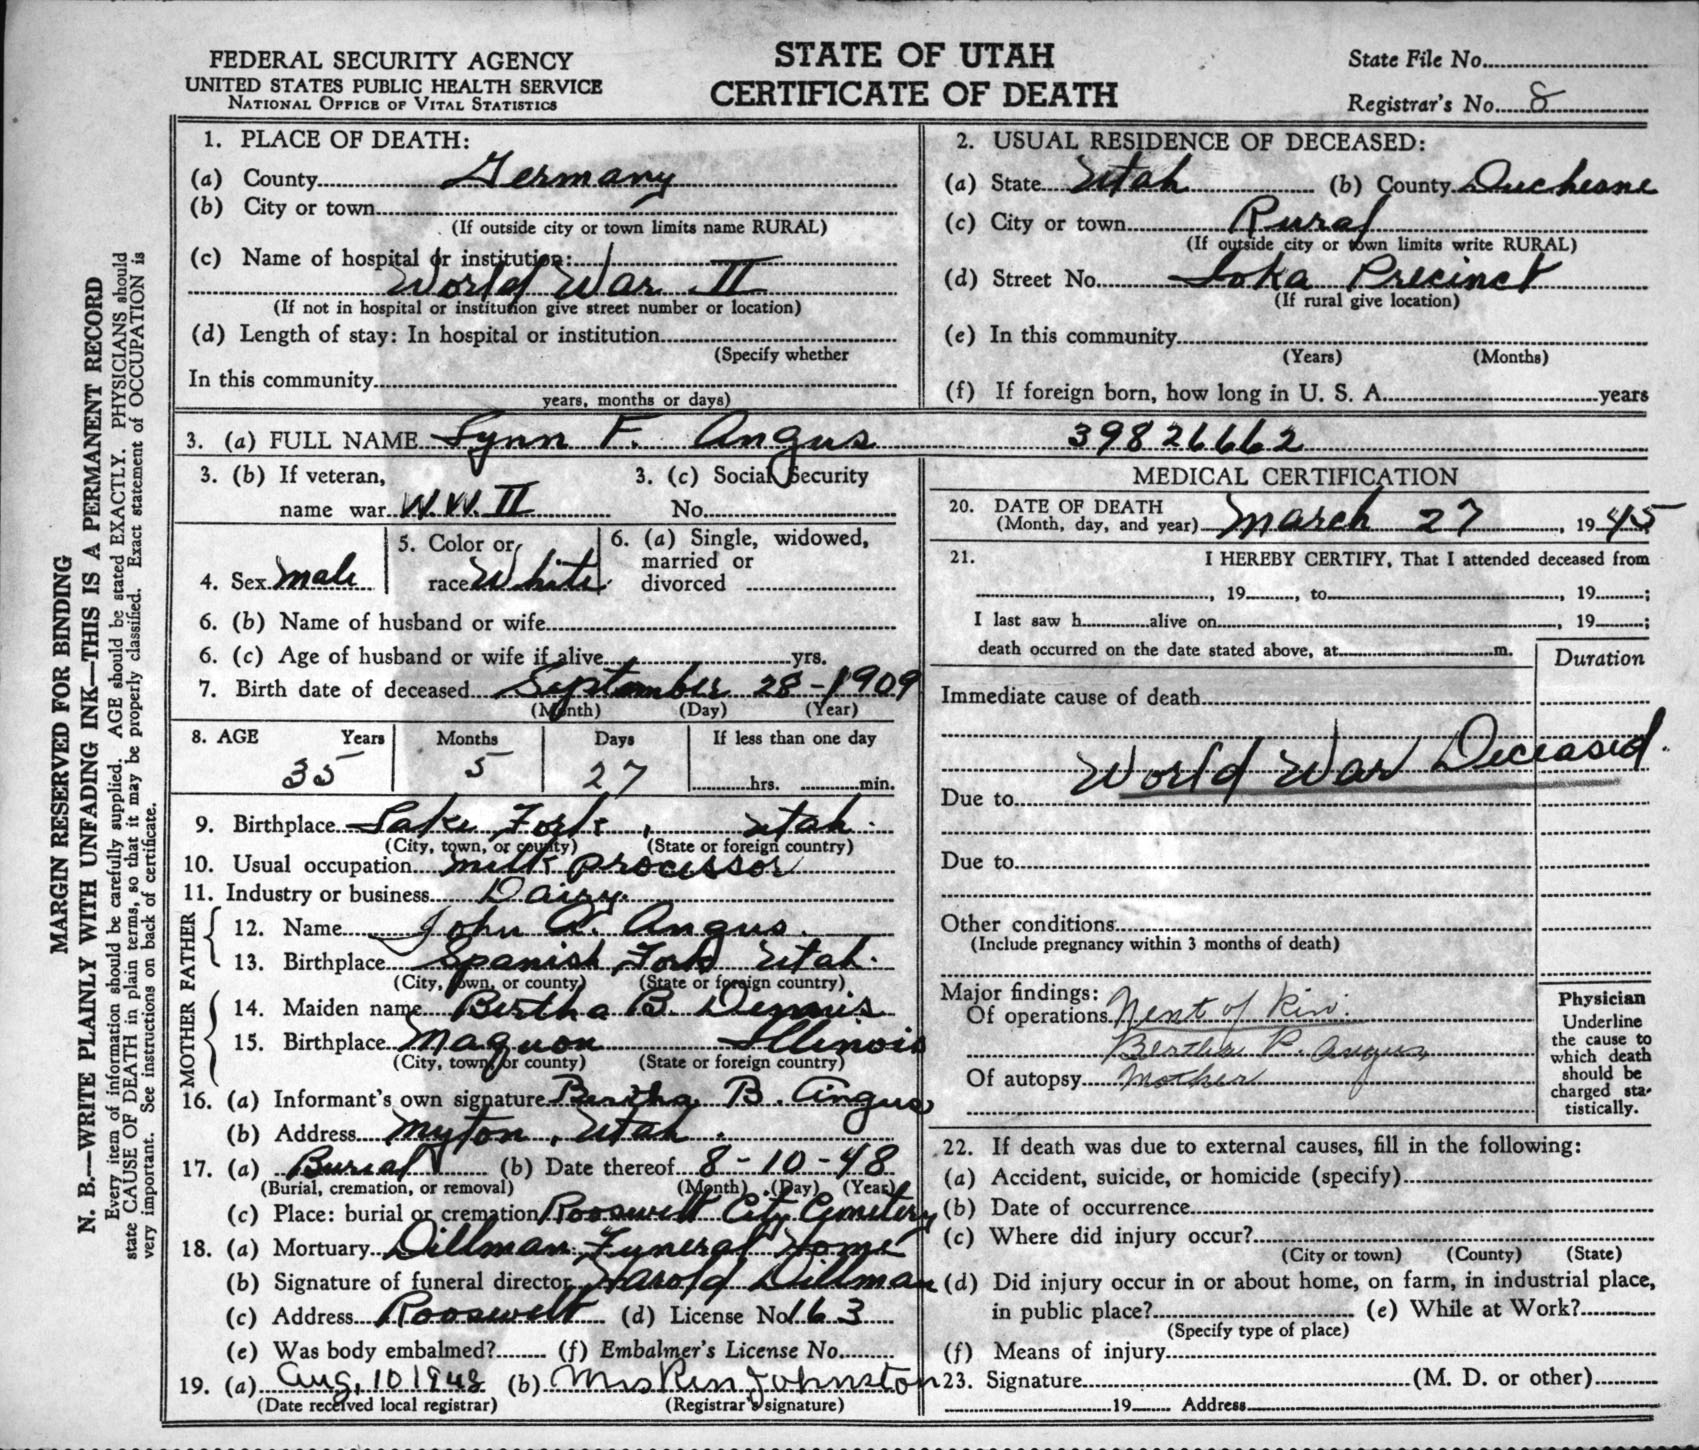 FEDERAL SECURITY AGENCY
UNITED STATES PUBLIC HEALTH SERVICE
NATIONAL OFFICE OF VITAL STATISTICS
STATE OF UTAH
CERTIFICATE OF DEATH
State File No.
Registrar's No. 8
MARGIN RESERVED FOR BINDING
N. B.—WRITE PLAINLY WITH UNFADING INK—THIS IS A PERMANENT RECORD
Every item of information should be carefully supplied. AGE should be stated EXACTLY. PHYSICIANS should
state CAUSE OF DEATH in plain terms, so that it may be properly classified. Exact statement of OCCUPATION is
very important. See instructions on back of certificate.
1. PLACE OF DEATH:
(a) County Germany
(b) City or town
(If outside city or town limits name RURAL)
(c) Name of hospital or institution:
World War II
(If not in hospital or institution give street number or location)
(d) Length of stay: In hospital or institution
(Specify whether
In this community
years, months or days)
2. USUAL RESIDENCE OF DECEASED:
(a) State Utah (b) County Duchesne
(c) City or town Rural
(If outside city or town limits write RURAL)
(d) Street No. Ioka Precinct
(If rural give location)
(e) In this community
(Years) (Months)
(f) If foreign born, how long in U. S. A. years
3. (a) FULL NAME Lynn F. Angus 39826662
3. (b) If veteran,
name war W.W. II
3. (c) Social Security
No.
4. Sex Male
5. Color or
race White
6. (a) Single, widowed,
married or
divorced
6. (b) Name of husband or wife
6. (c) Age of husband or wife if alive yrs.
7. Birth date of deceased September 28-1909
(Month) (Day) (Year)
8. AGE Years Months Days If less than one day
35 5 27 hrs. min.
9. Birthplace Lake Fork, Utah.
(City, town, or county) (State or foreign country)
10. Usual occupation milk processor
11. Industry or business Dairy.
FATHER
12. Name John A. Angus.
13. Birthplace Spanish Fork Utah.
(City, town, or county) (State or foreign country)
MOTHER
14. Maiden name Bertha B Dennis
15. Birthplace Maquon Illinois
(City, town, or county) (State or foreign country)
16. (a) Informant's own signature Bertha B. Angus
(b) Address Myton, Utah.
17. (a) Burial (b) Date thereof 8-10-48
(Burial, cremation, or removal) (Month) (Day) (Year)
(c) Place: burial or cremation Roosevelt City Cemetery
18. (a) Mortuary Dillman Funeral Home
(b) Signature of funeral director Harold Dillman
(c) Address Roosevelt (d) License No. 163
(e) Was body embalmed? (f) Embalmer's License No.
19. (a) Aug, 10 1948 (b) Mrs Johnston
(Date received local registrar) (Registrar's signature)
MEDICAL CERTIFICATION
20. DATE OF DEATH
(Month, day, and year) March 27, 1945
21. I HEREBY CERTIFY, That I attended deceased from
, 19 , to , 19 ;
I last saw h alive on , 19 ;
death occurred on the date stated above, at m.
Duration
Immediate cause of death
World War Deceased.
Due to
Due to
Other conditions
(Include pregnancy within 3 months of death)
Major findings:
Of operations Next of Kin.
Bertha B. Angus
Of autopsy Mother
Physician
Underline
the cause to
which death
should be
charged sta-
tistically.
22. If death was due to external causes, fill in the following:
(a) Accident, suicide, or homicide (specify)
(b) Date of occurrence
(c) Where did injury occur?
(City or town) (County) (State)
(d) Did injury occur in or about home, on farm, in industrial place,
in public place? (e) While at Work?
(Specify type of place)
(f) Means of injury
23. Signature (M. D. or other)
19 Address